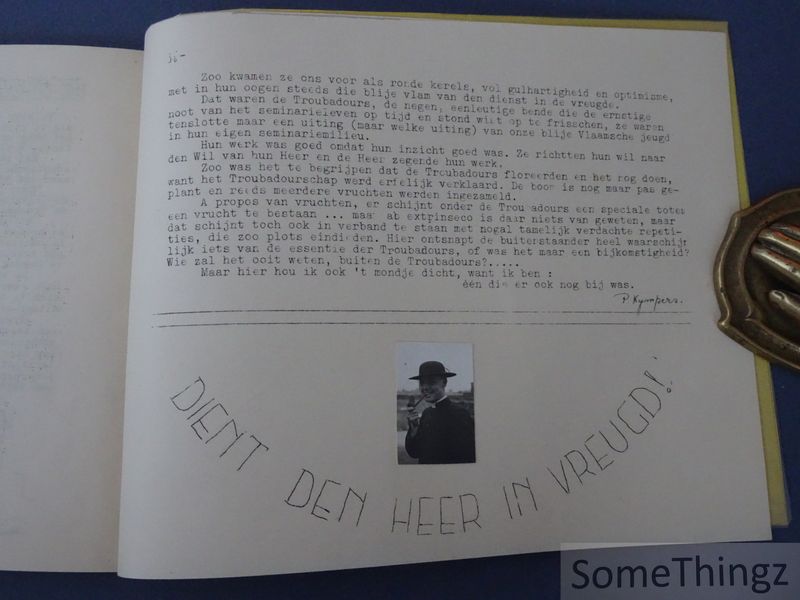 Zoo kwamen ze ons voor als ronde kerels, vol gulhartigheid en optimisme,
met in hun oogen steeds die blije vlam van den dienst in de vreugde.
Dat waren de Troubadours, de negen, eenleutige bende die de ernstige
noot van het seminarieleven op tijd en stond wist op te frisschen, ze waren
tenslotte maar een uiting (maar welke uiting) van onze blije Vlaamsche jeugd
in hun eigen seminariemilieu.
Hun werk was goed omdat hun inzicht goed was. Ze richtten hun wil naar
den Wil van hun Heer en de Heer zegende hun werk.
Zoo was het te begrijpen dat de Troubadours floreerden en het nog doen,
want het Troubadourschap werd erfelijk verklaard. De boom is nog maar pas ge-
plant en reeds meerdere vruchten werden ingezameld.
A propos van vruchten, er schijnt onder de Troubadours een speciale totem
een vrucht te bestaan ... maar ab extrinseco is daar niets van geweten, maar
dat schijnt toch ook in verband te staan met nogal tamelijk verdachte repeti-
ties, die zoo plots eindigden. Hier ontsnapt de buitenstaander heel waarschijn
lijk iets van de essentie der Troubadours, of was het maar een bijkomstigheid?
Wie zal het ooit weten, buiten de Troubadours?.....
Maar hier hou ik ook 't mondje dicht, want ik ben :
één die er ook nog bij was.
P. Kympers.
DIENT DEN HEER IN VREUGD!
SomeThingz